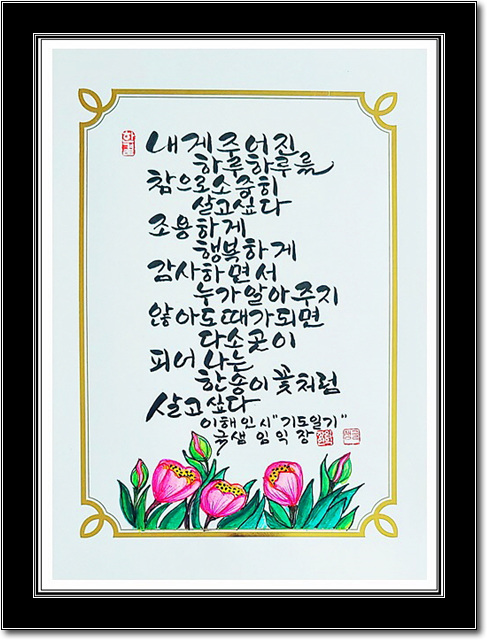 내게 주어진
하루하루를
참으로 소중히
살고싶다
조용하게
행복하게
감사하면서
누가 알아주지
않아도 때가되면
다소곳이
피어나는
한송이 꽃처럼
살고싶다
이해인 시 "기도일기"
글샘 임익장